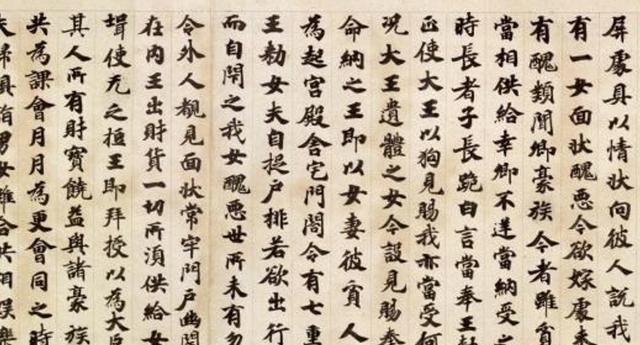 屏處具以情狀向彼人說我
有一女面狀醜惡今欲嫁處未
有醜類聞卿豪族今者雖貧
當相供給幸卿不逆當納受之
時長者子長跪白言當奉王勅
正使大王以狗見賜我亦當受何
況大王遺體之女今設見賜奉
命納之王即以女妻彼貧人
為起宮殿舍宅門閤令有七重
王勅女夫自捉戶排若欲出行
而自閇之我女醜惡世所未有勿
令外人覩見面狀常牢門戶幽閇
在內王出財貨一切所須供給女
壻使无乏短王即拜授以為大臣
其人所有財寶饒益與諸豪族
共為讌會月月為更會同之時
夫婦俱詣男女雜合共相娛樂